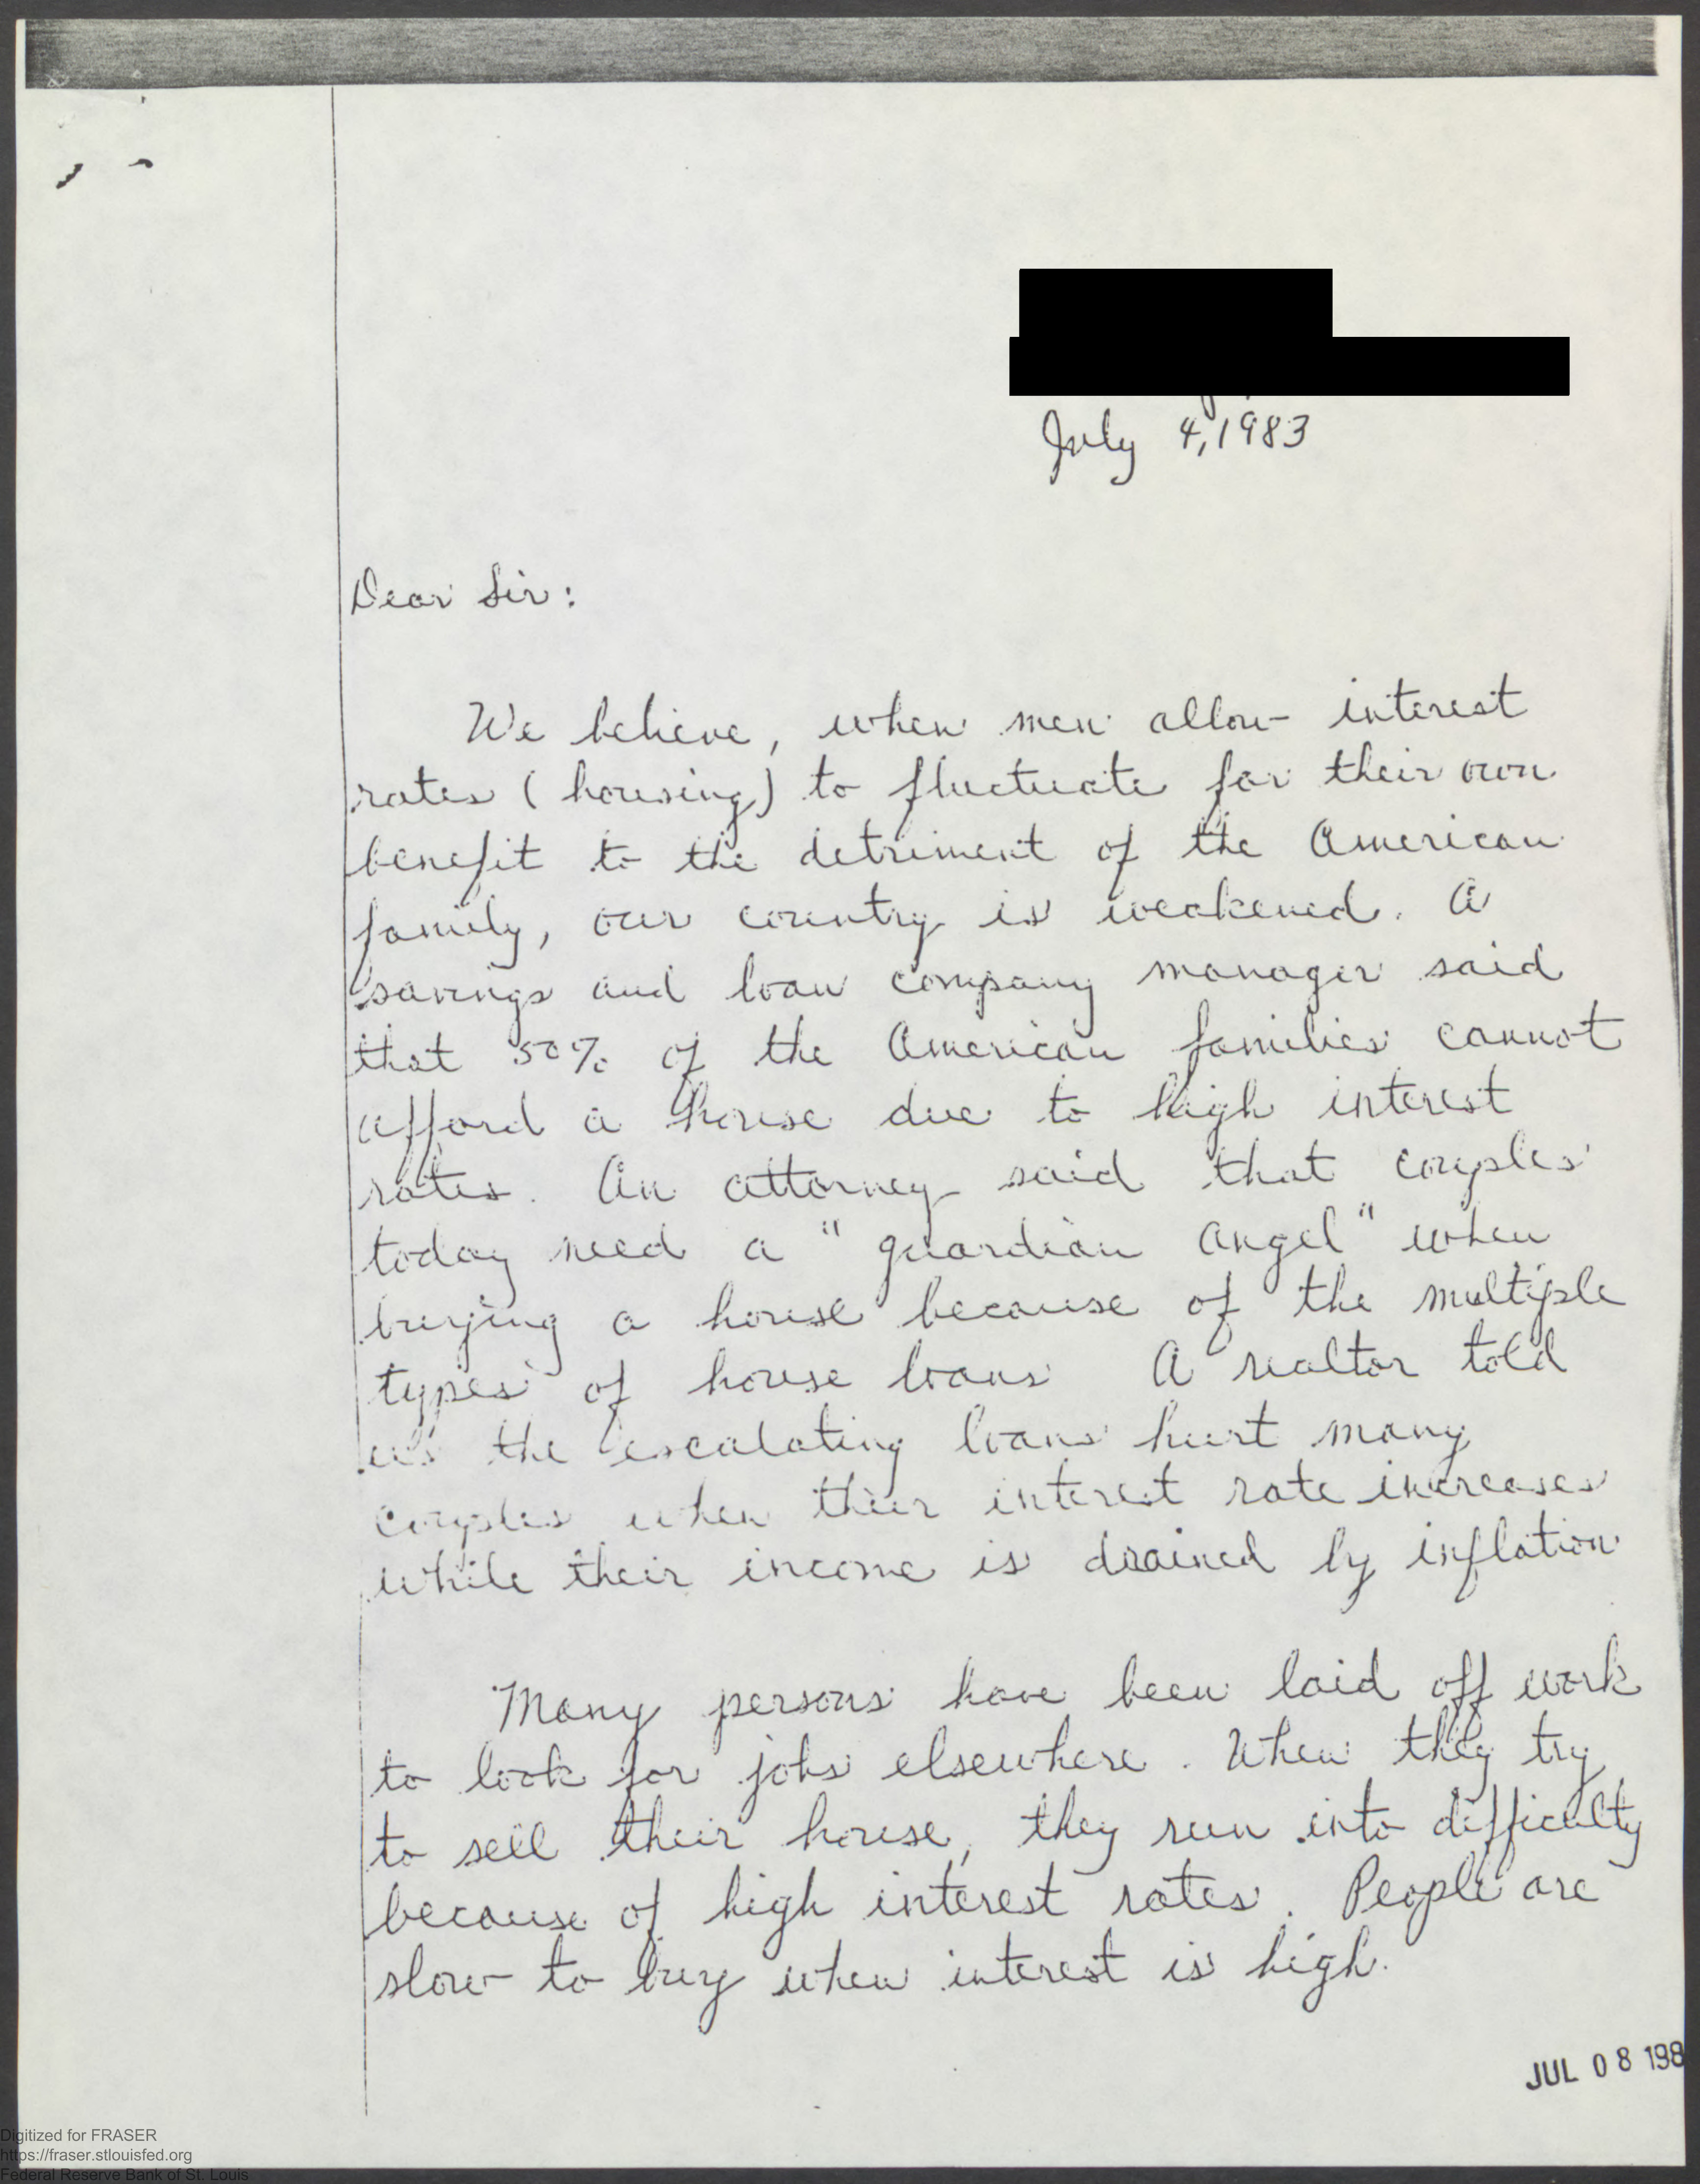 July 4, 1983
Dear Sir:
We believe, when men allow interest
rates (housing) to fluctuate for their own
benefit to the detriment of the American
family, our country is weakened. A
savings and loan company manager said
that 50% of the American families cannot
afford a house due to high interest
rates. An attorney said that couples
today need a "guardian angel" when
buying a house because of the multiple
types of house loans A realtor told
us the escalating loans hurt many
couples when their interest rate increases
while their income is drained by inflation
Many persons have been laid off work
to look for jobs elsewhere. When they try
to sell their house, they run into difficulty
because of high interest rates. People are
slow to buy when interest is high.
JUL 08 198
Digitized for FRASER
https://fraser.stlouisfed.org
Federal Reserve Bank of St. Louis